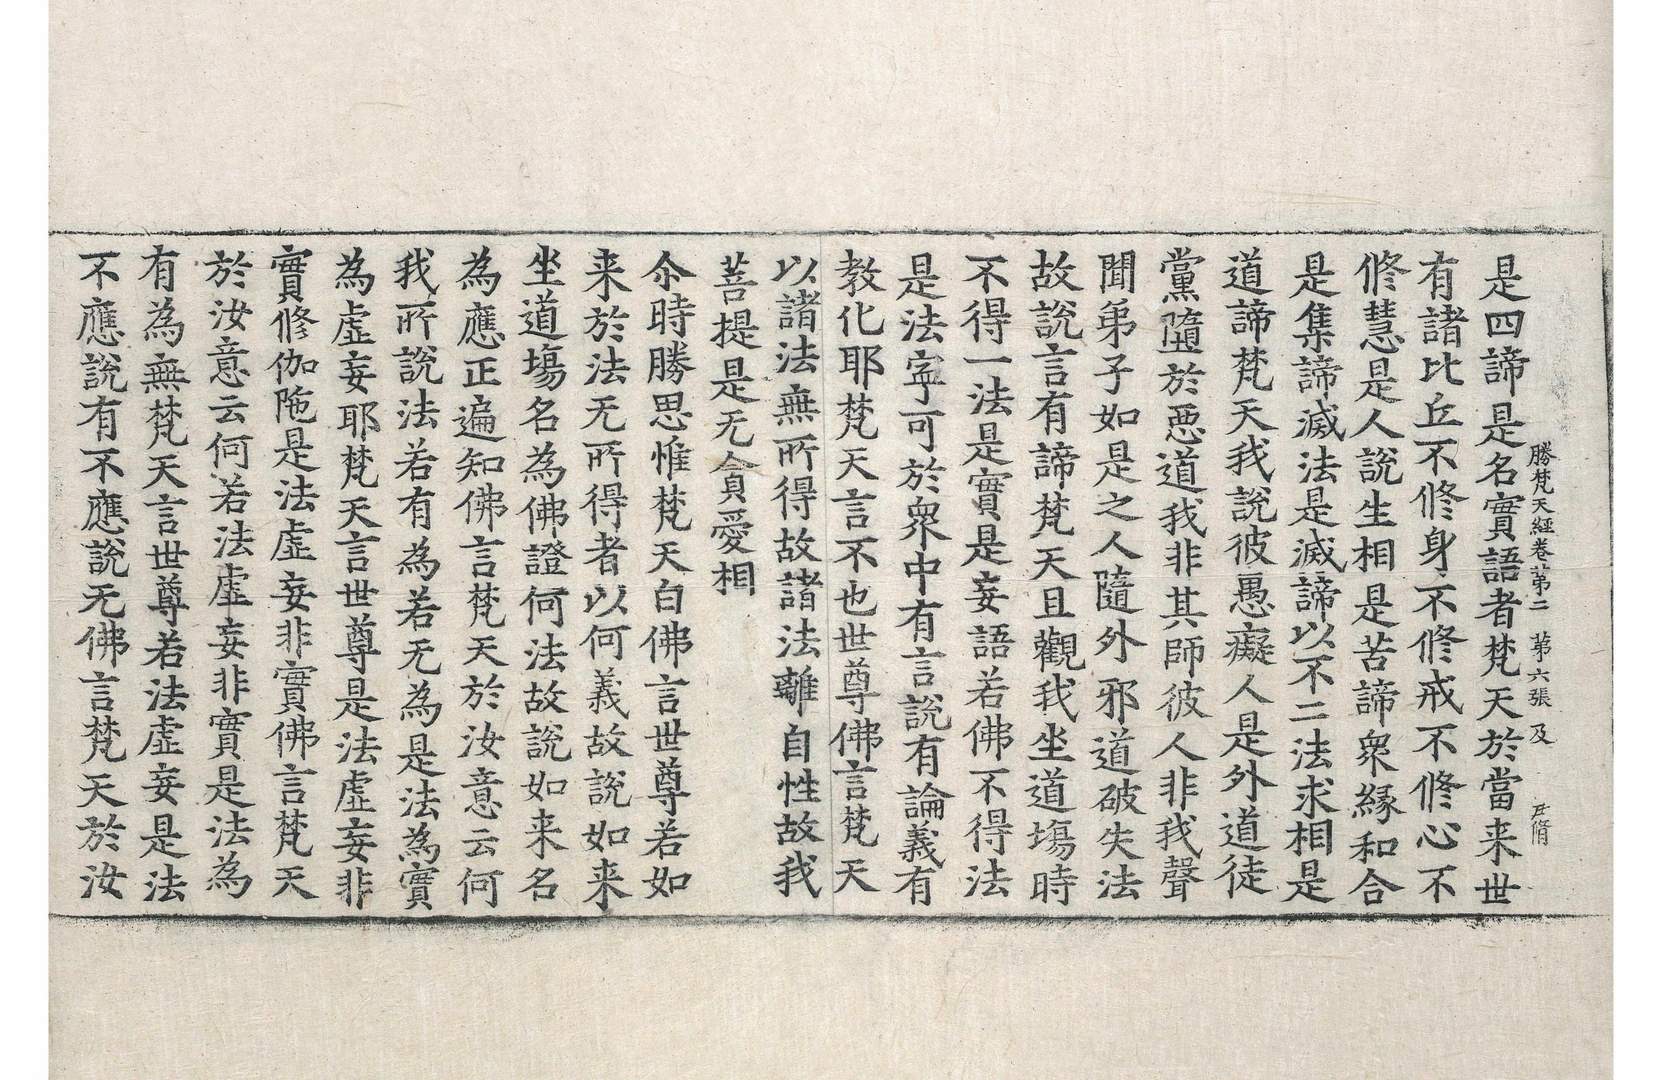 勝梵天經卷苐二 第六張 及
是四諦是名實語者梵天於當来世
有諸比丘不修身不修戒不修心不
修慧是人說生相是苦諦衆緣和合
是集諦滅法是滅諦以不二法求相是
道諦梵天我說彼愚癡人是外道徒
黨墮於惡道我非其師彼人非我聲
聞弟子如是之人隨外邪道破失法
故說言有諦梵天且觀我坐道塲時
不得一法是實是妄語若佛不得法
是法寧可於衆中有言說有論義有
教化耶梵天言不也世尊佛言梵天
以諸法無所得故諸法離自性故我
菩提是无貪愛相
尒時勝思惟梵天白佛言世尊若如
来於法无所得者以何義故說如来
坐道塲名為佛證何法故說如来名
為應正遍知佛言梵天於汝意云何
我所說法若有為若无為是法為實
為虛妄耶梵天言世尊是法虛妄非
實修伽陁是法虛妄非實佛言梵天
於汝意云何若法虛妄非實是法為
有為無梵天言世尊若法虛妄是法
不應說有不應說无佛言梵天於汝